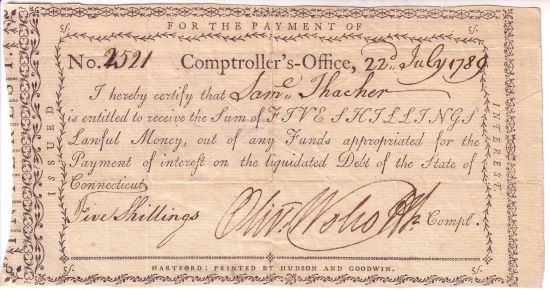 FOR THE PAYMENT OF
5/. 5/.
No. 2521 Comptroller's-Office, 22d July 1789
I hereby certify that Saml. Thacher
is entitled to receive the Sum of FIVE SHILLINGS
Lawful Money, out of any Funds appropriated for the
Payment of interest on the liquidated Debt of the State of
Connecticut,
Five Shillings Olivr. Wolcott Jr. Compl'r.
5/. 5/.
HARTFORD: PRINTED BY HUDSON AND GOODWIN.
ISSUED
INTEREST